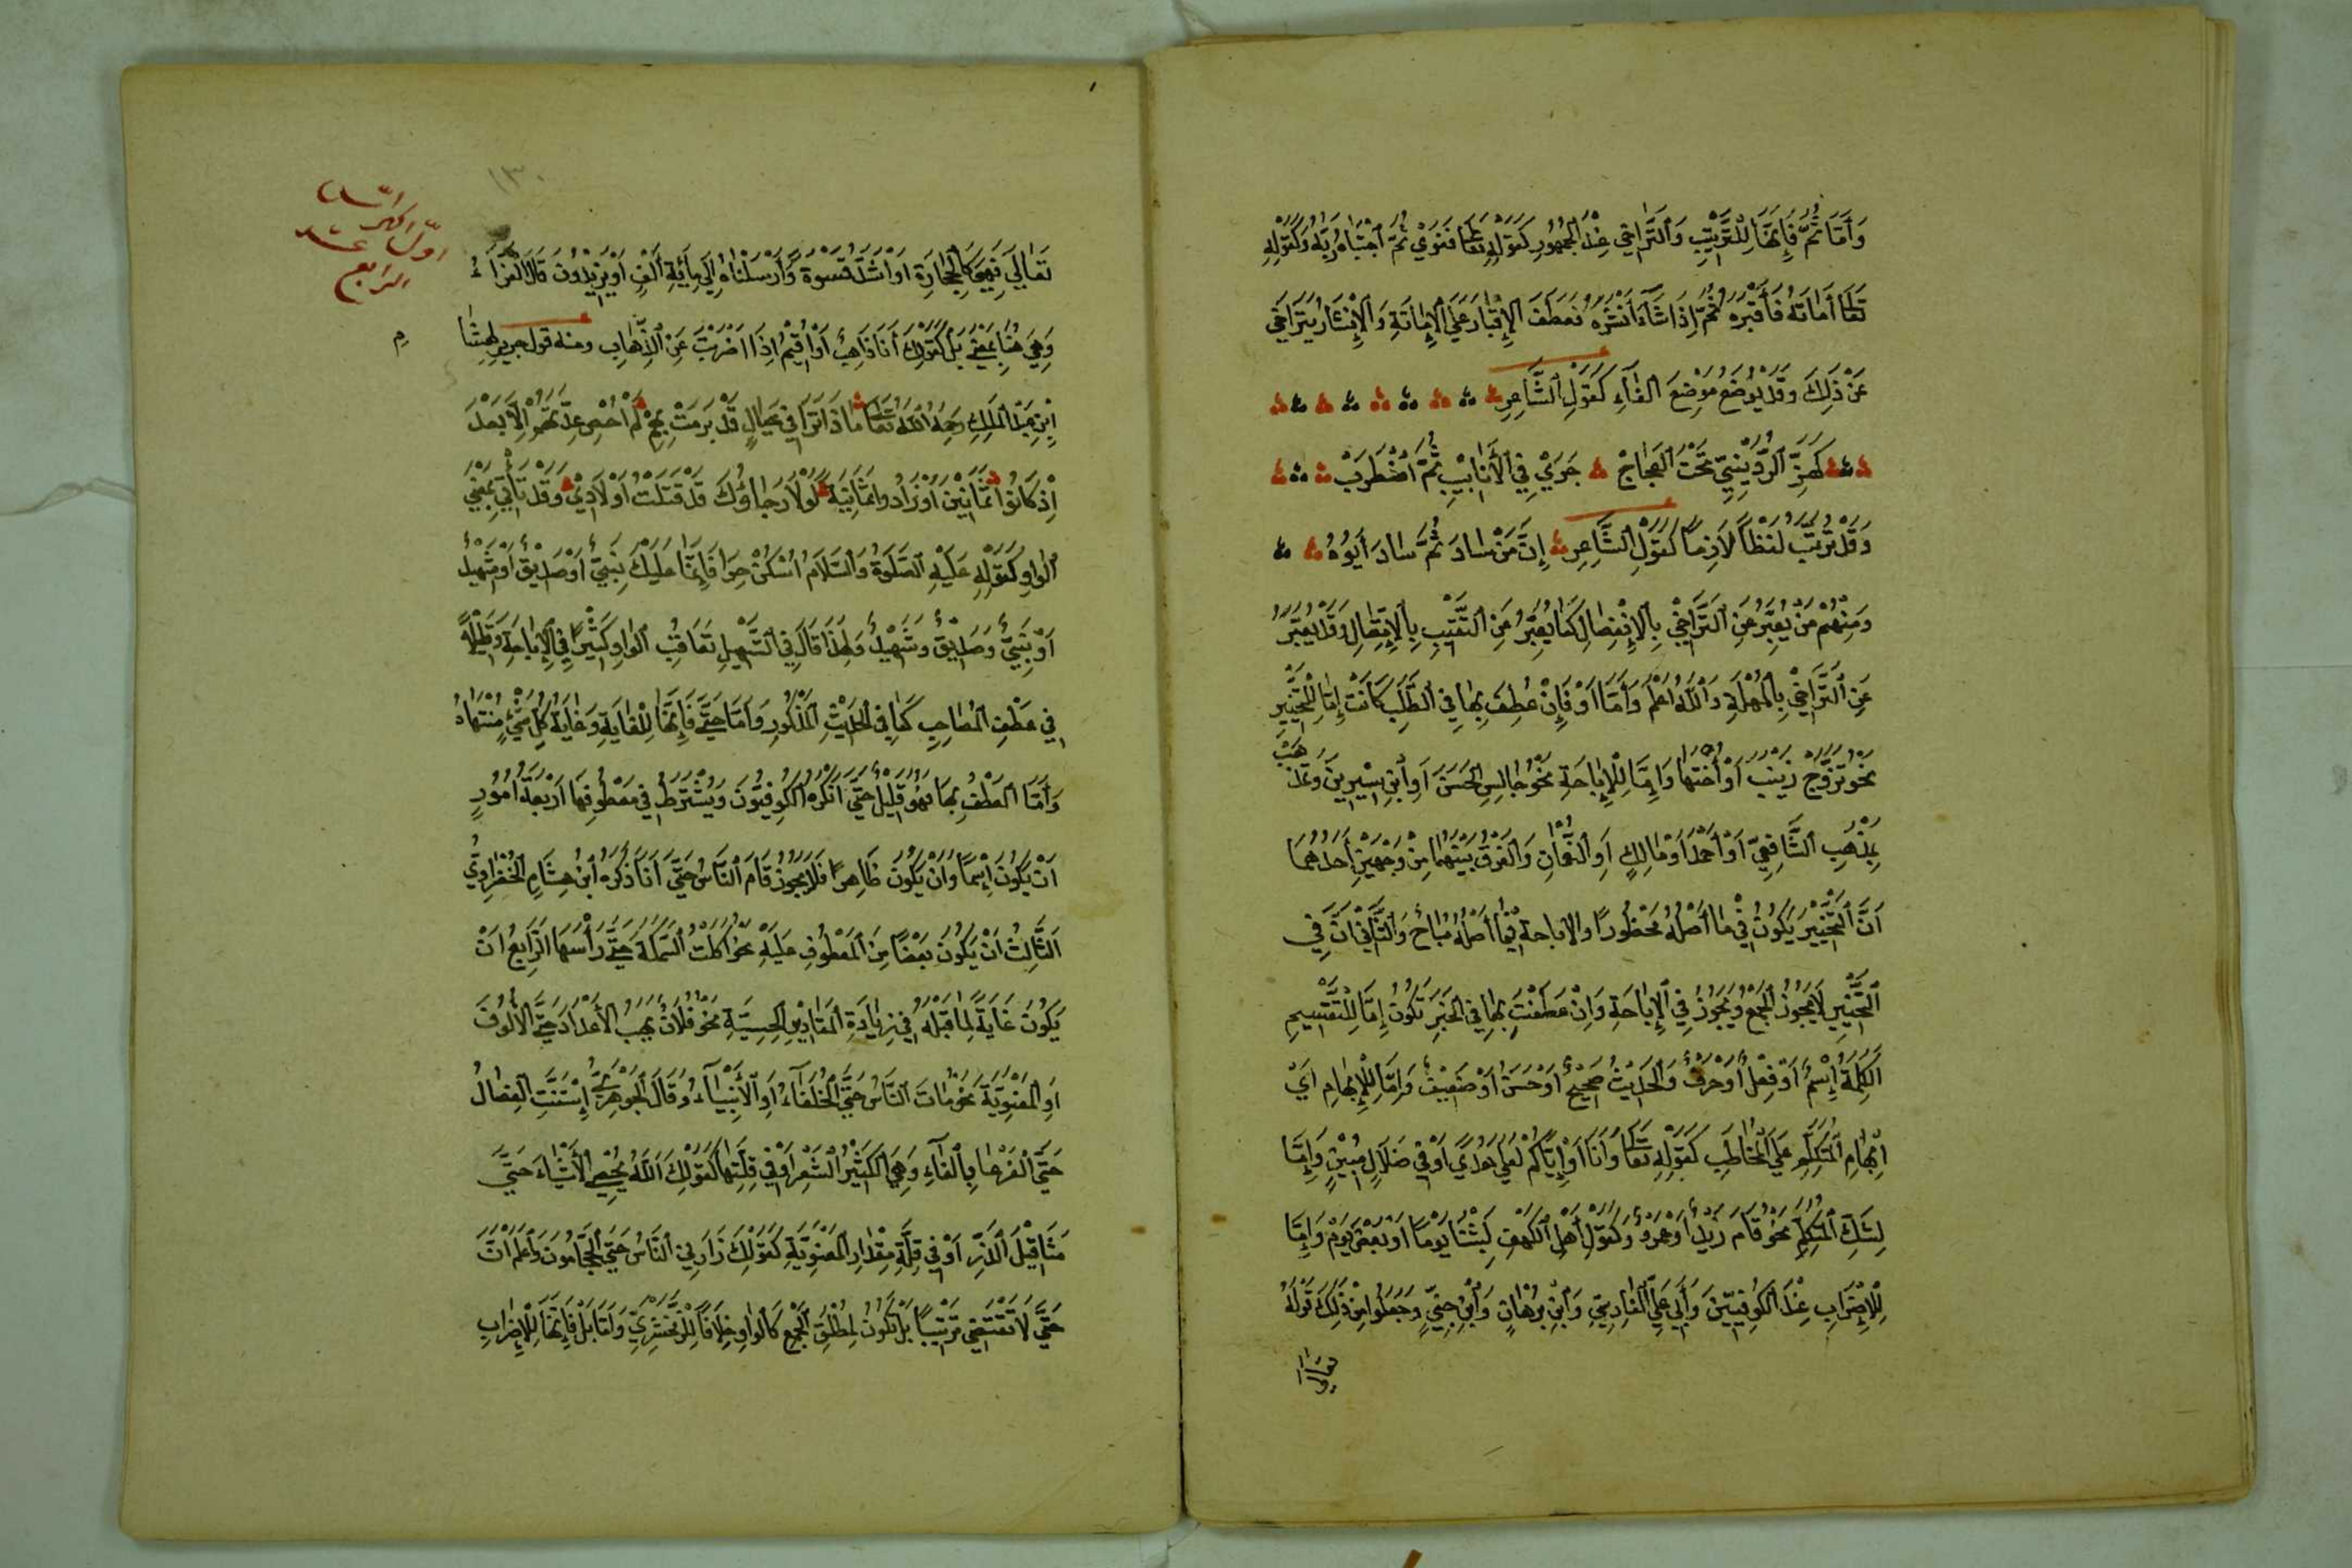 وَأَمَّا ثُمَّ فَإِنَّهَا لِلتَّرْتِيْبِ وَالتَّرَاخِي عِنْدَ الْجُمْهُورِ كَقَوْلِهِ تَعَالَى فَغَوَىٰ ثُمَّ اجْتَبَاهُ رَبُّهُ وَكَقَوْلِهِ
تَعَالَى أَمَاتَهُ فَأَقْبَرَهُ ثُمَّ إِذَا شَاءَ أَنْشَرَهُ فَعَطَفَ الْإِقْبَارَ عَلَى الْإِمَاتَةِ وَالْإِنْشَارُ يَتَرَاخَى
عَنْ ذَلِكَ وَقَدْ يُوْضَعُ مَوْضِعَ الْفَاءِ كَقَوْلِ الشَّاعِرِ
كَهَزِّ الرُّدَيْنِيِّ تَحْتَ الْعَجَاجْ جَرَىٰ فِي الْأَنَابِيْبِ ثُمَّ اضْطَرَبْ
وَقَدْ تُرَتِّبُ لَفْظًا لَازِمًا كَقَوْلِ الشَّاعِرِ إِنَّ مَنْ سَادَ ثُمَّ سَادَ أَبُوْهُ
وَمِنْهُمْ مَنْ يُعَبِّرُ عَنِ التَّرَاخِيْ بِالْإِنْفِصَالِ كَمَا يُعَبِّرُ عَنِ التَّعْقِيْبِ بِالْإِتِّصَالِ وَقَدْ يُعَبَّرُ
عَنِ التَّرَاخِيْ بِالْمُهْلَةِ وَاللَّهُ أَعْلَمُ وَأَمَّا أَوْ فَإِنْ عُطِفَ بِهَا فِي الطَّلَبِ كَانَتْ إِمَّا لِلتَّخْيِيْرِ
نَحْوُ تَزَوَّجْ زَيْنَبَ أَوْ أُخْتَهَا وَإِمَّا لِلْإِبَاحَةِ نَحْوُ جَالِسِ الْحَسَنَ أَوِ ابْنَ سِيْرِيْنَ وَتَمَذْهَبْ
بِمَذْهَبِ الشَّافِعِيِّ أَوْ أَحْمَدَ أَوْ مَالِكٍ أَوِ النُّعْمَانِ وَالْفَرْقُ بَيْنَهُمَا مِنْ وَجْهَيْنِ أَحَدُهُمَا
أَنَّ التَّخْيِيْرَ يَكُوْنُ فِيْ مَا أَصْلُهُ مَحْظُوْرًا وَالْإِبَاحَةَ فِيْمَا أَصْلُهُ مُبَاحٌ وَالثَّانِيْ أَنَّ فِي
التَّخْيِيْرِ لَا يَجُوْزُ الْجَمْعُ وَيَجُوْزُ فِي الْإِبَاحَةِ وَإِنْ عَطَفْتَ بِهَا فِي الْخَبَرِ تَكُوْنُ إِمَّا لِلتَّقْسِيْمِ
الْكَلِمَةُ إِسْمٌ أَوْ فِعْلٌ أَوْ حَرْفٌ وَالْحَدِيْثُ صَحِيْحٌ أَوْ حَسَنٌ أَوْ ضَعِيْفٌ وَإِمَّا لِلْإِبْهَامِ أَيْ
إِبْهَامِ الْمُتَكَلِّمِ عَلَى الْمُخَاطَبِ كَقَوْلِهِ تَعَالَى وَأَنَا أَوْ إِيَّاكُمْ لَعَلَى هُدًى أَوْ فِي ضَلَالٍ مُبِيْنٍ وَإِمَّا
لِشَكِّ الْمُتَكَلِّمِ نَحْوُ قَامَ زَيْدٌ أَوْ عَمْرٌو وَكَقَوْلِ أَهْلِ الْكَهْفِ لَبِثْنَا يَوْمًا أَوْ بَعْضَ يَوْمٍ وَإِمَّا
لِلْإِضْرَابِ عِنْدَ الْكُوْفِيِّيْنَ وَأَبِيْ عَلِيٍّ الْفَارِسِيِّ وَابْنِ بُرْهَانٍ وَابْنِ جِنِّيٍّ وَجَعَلُوا مِنْ ذَلِكَ قَوْلَهُ
١٣٠
أول الكراس
الرابع عشر
تَعَالَى فَهِيَ كَالْحِجَارَةِ أَوْ أَشَدُّ قَسْوَةً وَأَرْسَلْنَاهُ إِلَى مِائَةِ أَلْفٍ أَوْ يَزِيْدُوْنَ قَالَ الْفَرَّاءُ
وَهِيَ هُنَا بِمَعْنَى بَلْ كَقَوْلِكَ أَنَا ذَاهِبٌ أَوْ أُقِيْمُ إِذَا أَضْرَبْتَ عَنِ الذِّهَابِ ومنه قول جرير لِهِشَامِ
ابْنِ عَبْدِ الْمَلِكِ رَحِمَهُ اللَّهُ تَعَالَى مَاذَا تَرَىٰ فِيْ عِيَالٍ قَدْ بَرِمْتُ بِهِمْ لَمْ أُحْصِ عِدَّتَهُمْ إِلَّا بَعْدَ
إِذْ كَانُوْا ثَمَانِيْنَ أَوْ زَادُوا ثَمَانِيَةً لَوْلَا رَجَاؤُكَ قَدْ قَتَلْتُ أَوْلَادِيْ وَقَدْ تَأْتِيْ بِمَعْنَى
الْوَاوِ كَقَوْلِهِ عَلَيْهِ الصَّلَوٰةُ وَالسَّلَامُ اسْكُنْ حِرَا فَإِنَّمَا عَلَيْكَ نَبِيٌّ أَوْ صِدِّيْقٌ أَوْ شَهِيْدٌ
أَوْ نَبِيٌّ وَصِدِّيْقٌ وَشَهِيْدٌ وَلِهَذَا قَالَ فِي التَّسْهِيْلِ تَعَاقُبُ الْوَاوِ كَثِيْرًا فِي الْإِبَاحَةِ وَقَلِيْلًا
فِيْ عَطْفِ الْمُصَاحِبِ كَمَا فِي الْحَدِيْثِ الْمَذْكُوْرِ وَأَمَّا حَتَّى فَإِنَّهَا لِلْغَايَةِ وَغَايَةُ كُلِّ شَيْءٍ مُنْتَهَاهُ
وَأَمَّا الْعَطْفُ بِهَا فَهُوَ قَلِيْلٌ حَتَّى أَنْكَرَهُ الْكُوْفِيُّوْنَ وَيُشْتَرَطُ فِيْ مَعْطُوْفِهَا أَرْبَعَةُ أُمُوْرٍ
أَنْ يَكُوْنَ إِسْمًا وَأَنْ يَكُوْنَ ظَاهِرًا فَلَا يَجُوْزُ قَامَ النَّاسُ حَتَّى أَنَا ذَكَرَهُ ابْنُ هِشَامٍ الْخَضْرَاوِيُّ
الثَّالِثُ أَنْ يَكُوْنَ بَعْضًا مِنَ الْمَعْطُوْفِ عَلَيْهِ نَحْوُ أَكَلْتُ السَّمَكَةَ حَتَّى رَأْسَهَا الرَّابِعُ أَنْ
يَكُوْنَ غَايَةً لِمَا قَبْلَهُ فِيْ زِيَادَةِ الْمَقَادِيْرِ الْحِسِّيَّةِ نَحْوُ فُلَانٌ يَهَبُ الْأَعْدَادَ حَتَّى الْأُلُوْفَ
أَوِ الْمَعْنَوِيَّةِ نَحْوُ مَاتَ النَّاسُ حَتَّى الْخُلَفَاءُ أَوِ الْأَنْبِيَاءُ وَقَالَ الْجَوْهَرِيُّ إِسْتَنَّتِ الْفِصَالُ
حَتَّى الْقَرْعَا بِالْفَاءِ وَهِيَ الْكَثِيْرُ الشَّعْرِ أَوْ فِيْ قِلَّتِهَا كَقَوْلِكَ اللَّهُ يُحْصِي الْأَشْيَاءَ حَتَّى
مَثَاقِيْلَ الذَّرِّ أَوْ فِيْ قِلَّةِ مِقْدَارِ الْمَعْنَوِيَّةِ كَقَوْلِكَ زَارَنِي النَّاسُ حَتَّى الْحَجَّامُوْنَ وَاعْلَمْ أَنَّ
حَتَّى لَا تَقْتَضِيْ تَرْتِيْبًا بَلْ تَكُوْنُ لِمُطْلَقِ الْجَمْعِ كَالْوَاوِ خِلَافًا لِلزَّمَخْشَرِيِّ وَأَمَّا بَلْ فَإِنَّهَا لِلْإِضْرَابِ